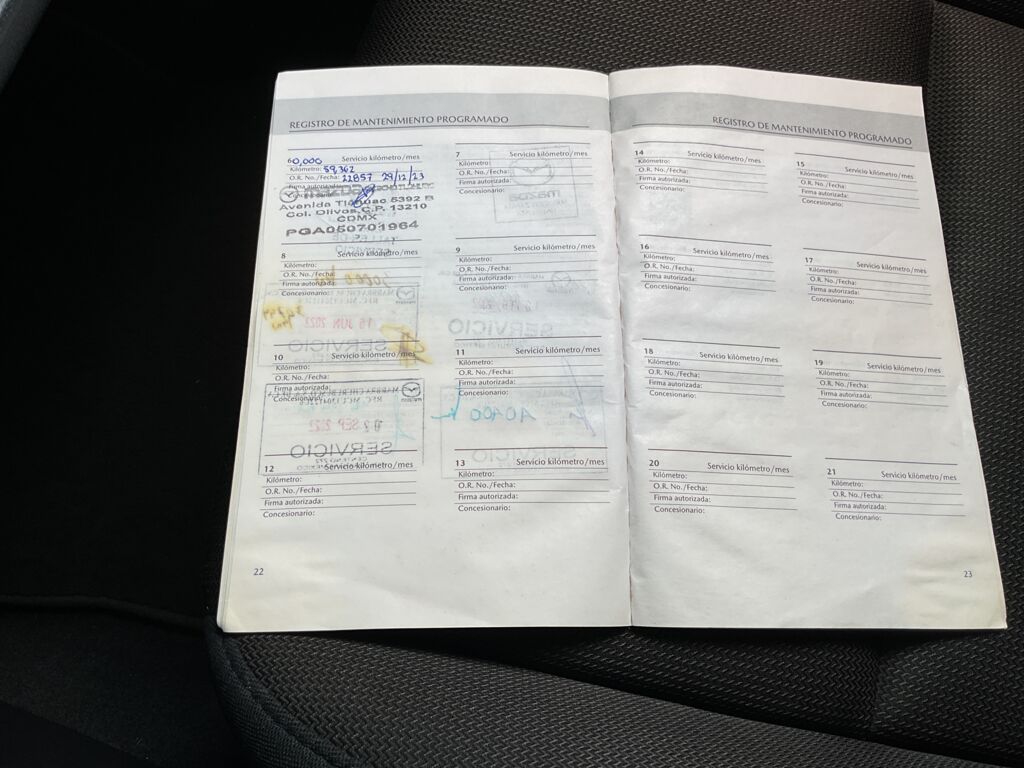 REGISTRO DE MANTENIMIENTO PROGRAMADO
60,000 Servicio kilómetro/mes
Kilómetro: 59,362
O.R. No./Fecha: 22857 29/12/23
Firma autorizada:
mazda
Avenida Tláhuac 5392 B
Col. Olivos, C.P. 13210
CDMX
PGA050701964
7 Servicio kilómetro/mes
Kilómetro:
O.R. No./Fecha:
Firma autorizada:
Concesionario:
8 Servicio kilómetro/mes
Kilómetro:
O.R. No./Fecha:
Firma autorizada:
Concesionario:
9 Servicio kilómetro/mes
Kilómetro:
O.R. No./Fecha:
Firma autorizada:
Concesionario:
10 Servicio kilómetro/mes
Kilómetro:
O.R. No./Fecha:
Firma autorizada:
Concesionario:
11 Servicio kilómetro/mes
Kilómetro:
O.R. No./Fecha:
Firma autorizada:
Concesionario:
12 Servicio kilómetro/mes
Kilómetro:
O.R. No./Fecha:
Firma autorizada:
Concesionario:
13 Servicio kilómetro/mes
Kilómetro:
O.R. No./Fecha:
Firma autorizada:
Concesionario:
22
REGISTRO DE MANTENIMIENTO PROGRAMADO
14 Servicio kilómetro/mes
Kilómetro:
O.R. No./Fecha:
Firma autorizada:
Concesionario:
15 Servicio kilómetro/mes
Kilómetro:
O.R. No./Fecha:
Firma autorizada:
Concesionario:
16 Servicio kilómetro/mes
Kilómetro:
O.R. No./Fecha:
Firma autorizada:
Concesionario:
17 Servicio kilómetro/mes
Kilómetro:
O.R. No./Fecha:
Firma autorizada:
Concesionario:
18 Servicio kilómetro/mes
Kilómetro:
O.R. No./Fecha:
Firma autorizada:
Concesionario:
19 Servicio kilómetro/mes
Kilómetro:
O.R. No./Fecha:
Firma autorizada:
Concesionario:
20 Servicio kilómetro/mes
Kilómetro:
O.R. No./Fecha:
Firma autorizada:
Concesionario:
21 Servicio kilómetro/mes
Kilómetro:
O.R. No./Fecha:
Firma autorizada:
Concesionario:
23